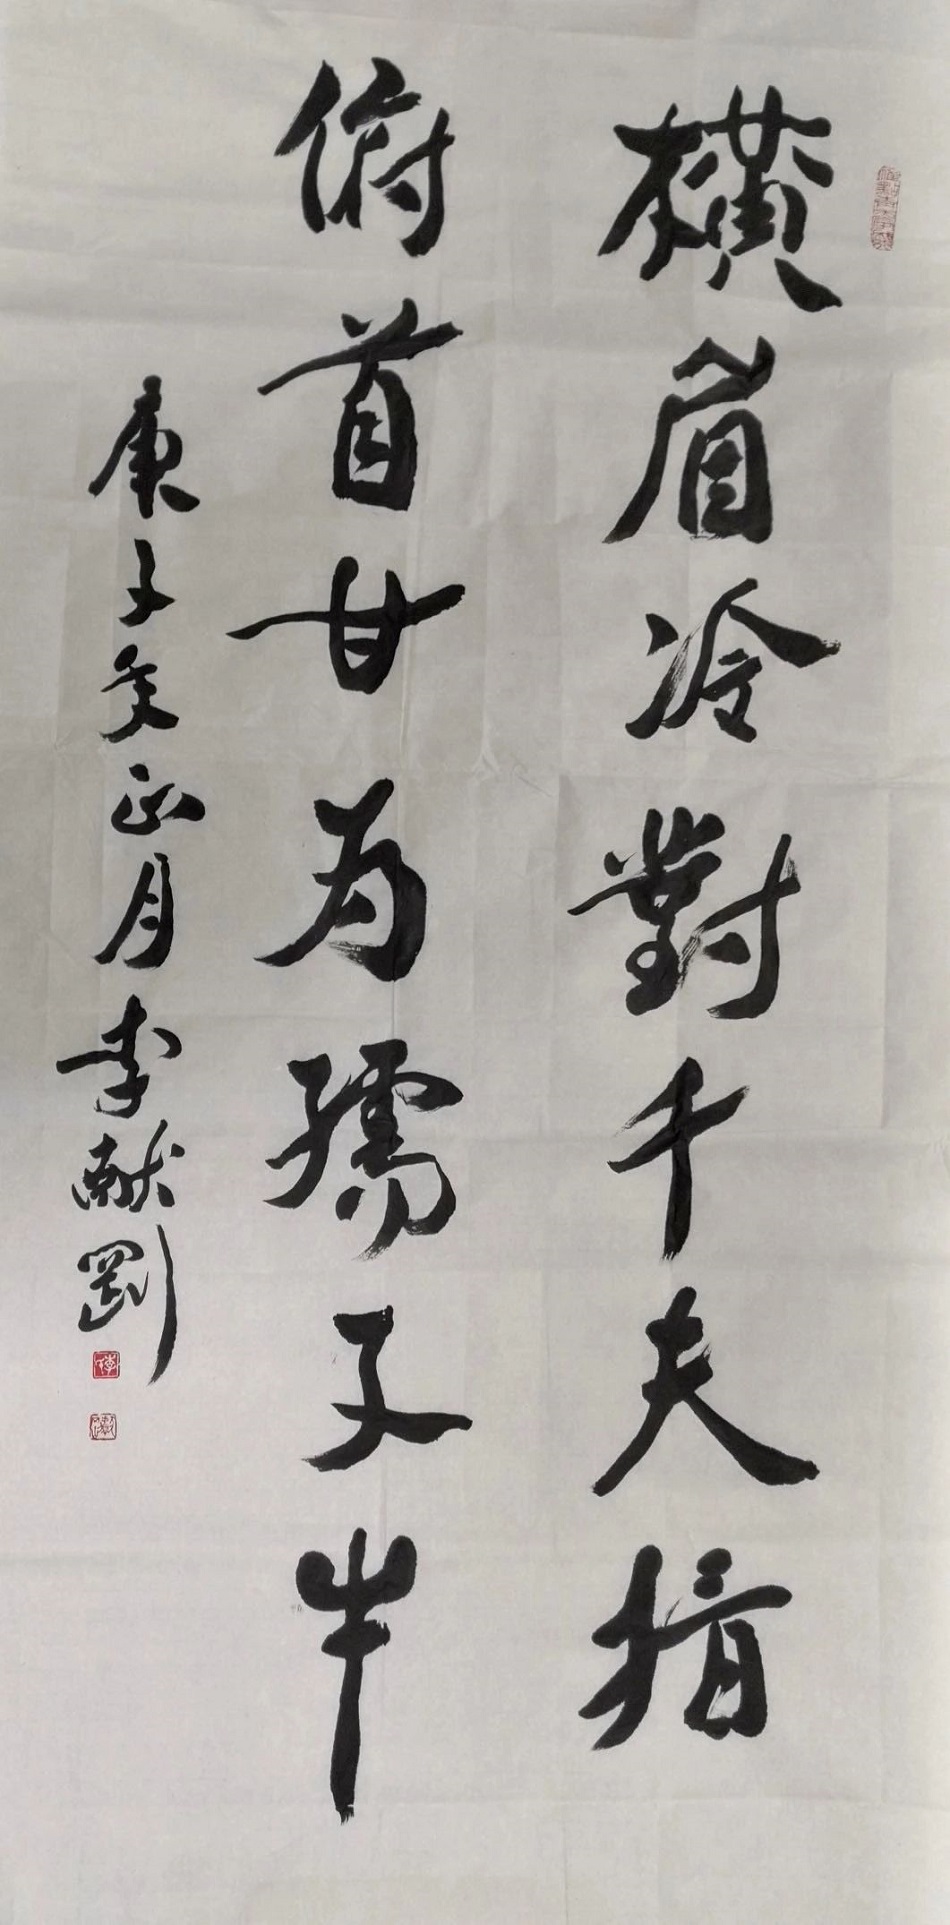 橫眉冷對千夫指
俯首甘为孺子牛
庚子年正月李献剛